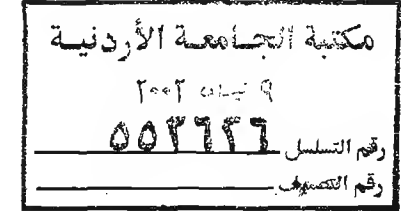 مكتبة الجامعة الأردنية
٩ نيسان ٢٠٠٢
رقم التسلسل ٥٥٢٦٢٦
رقم التصنيف